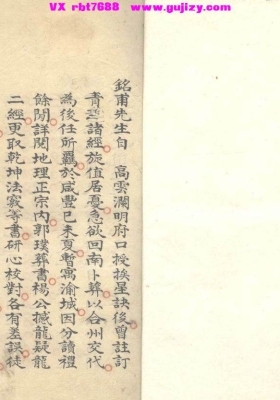 VX rbt7688 www.gujizy.com
銘甫先生自 高雲瀾明府口授挨星訣後曾註訂
青囊諸經旋值居憂急欲回南卜葬以台州交代
為後任所羈於咸豐己未夏暫寓渝城因分讀禮
餘閒詳閱地理正宗內郭璞葬書楊公撼龍疑龍
二經更取乾坤法竅等書研心校對各有差誤徒